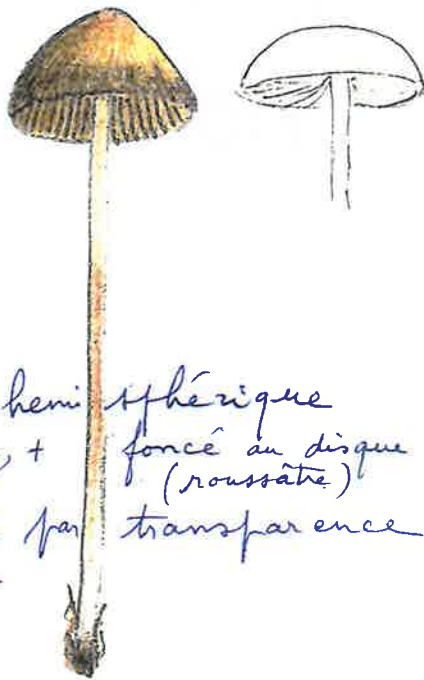 hemisphérique
, + foncé au disque
(roussâtre)
par transparence